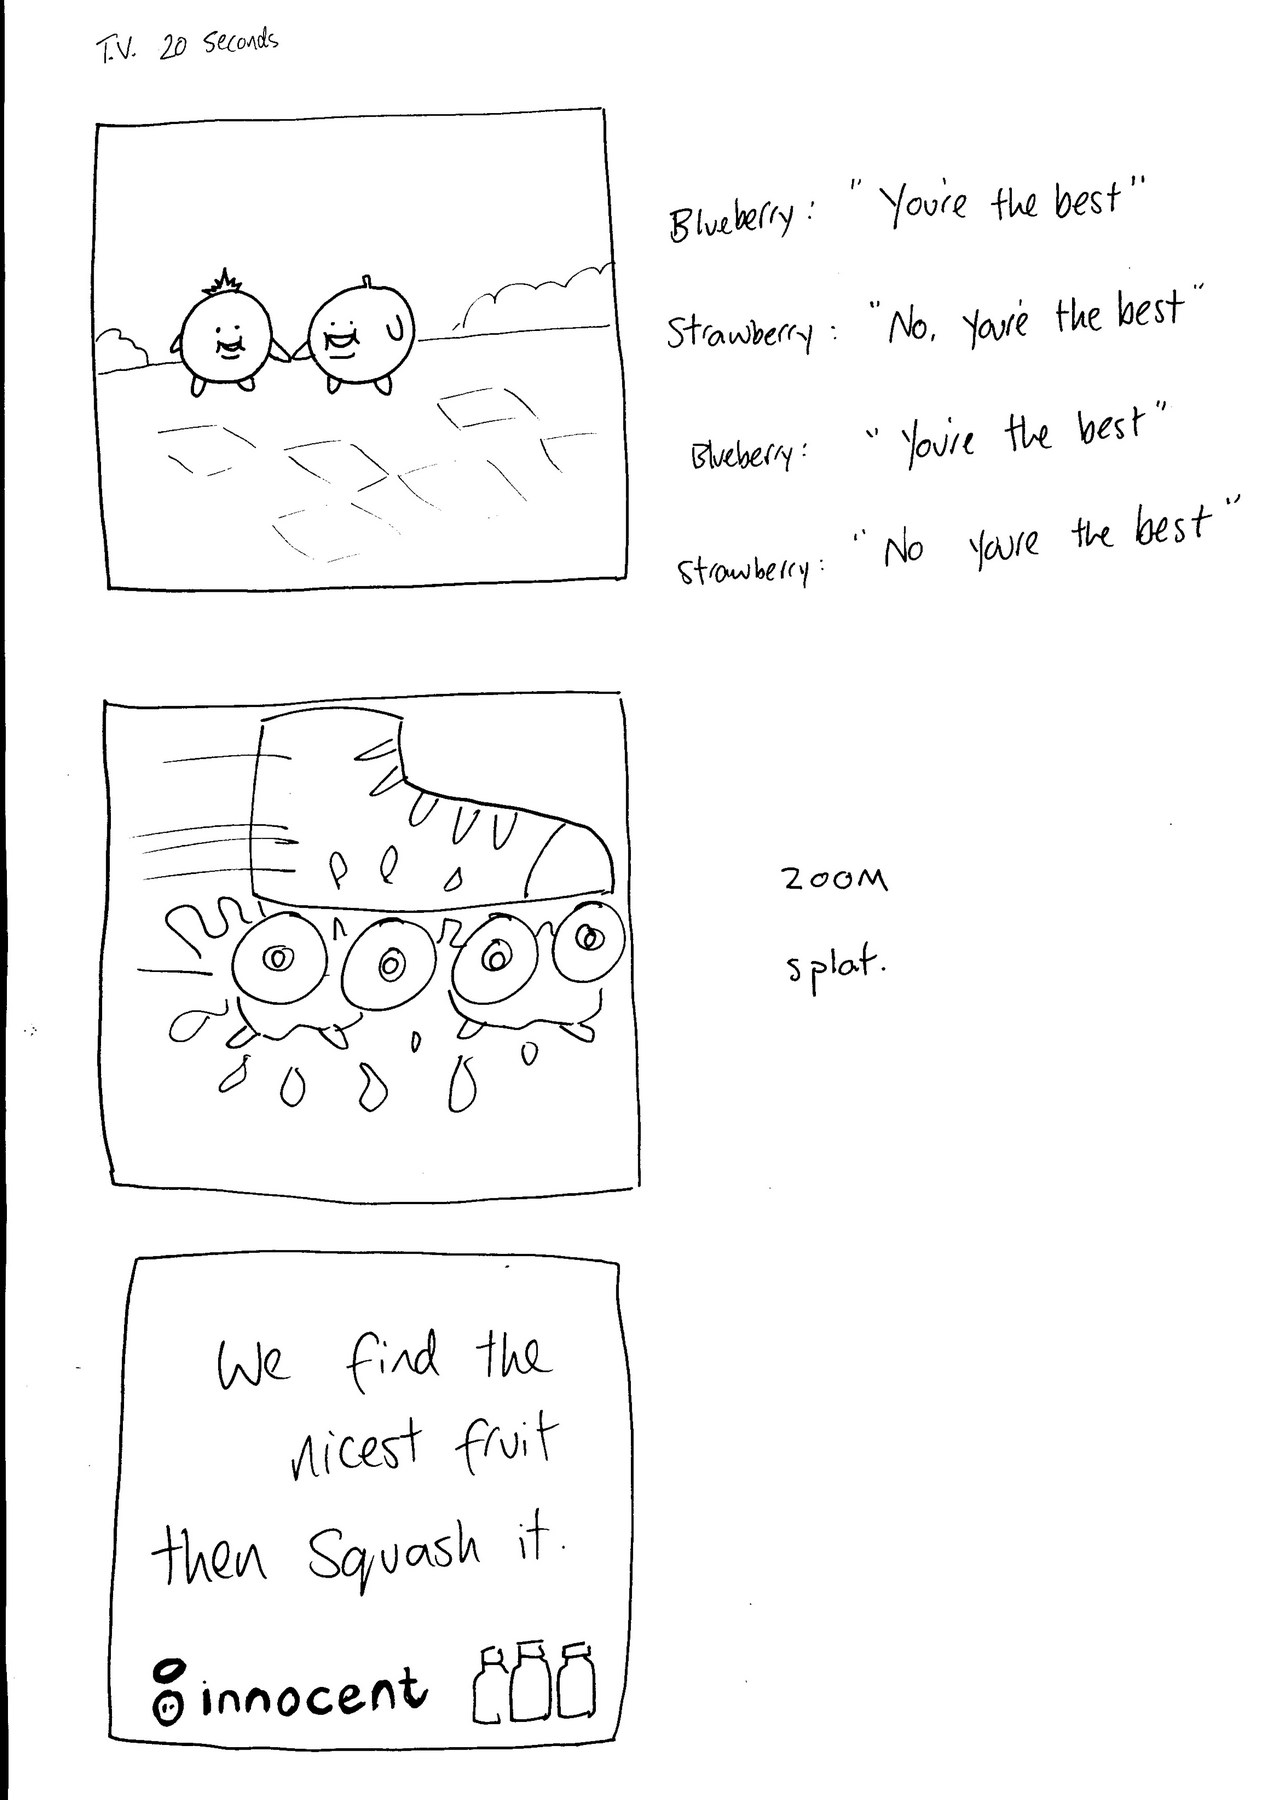 T.V. 20 Seconds
Blueberry: "You're the best"
Strawberry: "No, you're the best"
Blueberry: "You're the best"
Strawberry: "No you're the best"
ZOOM
splat.
We find the
nicest fruit
then Squash it.
innocent